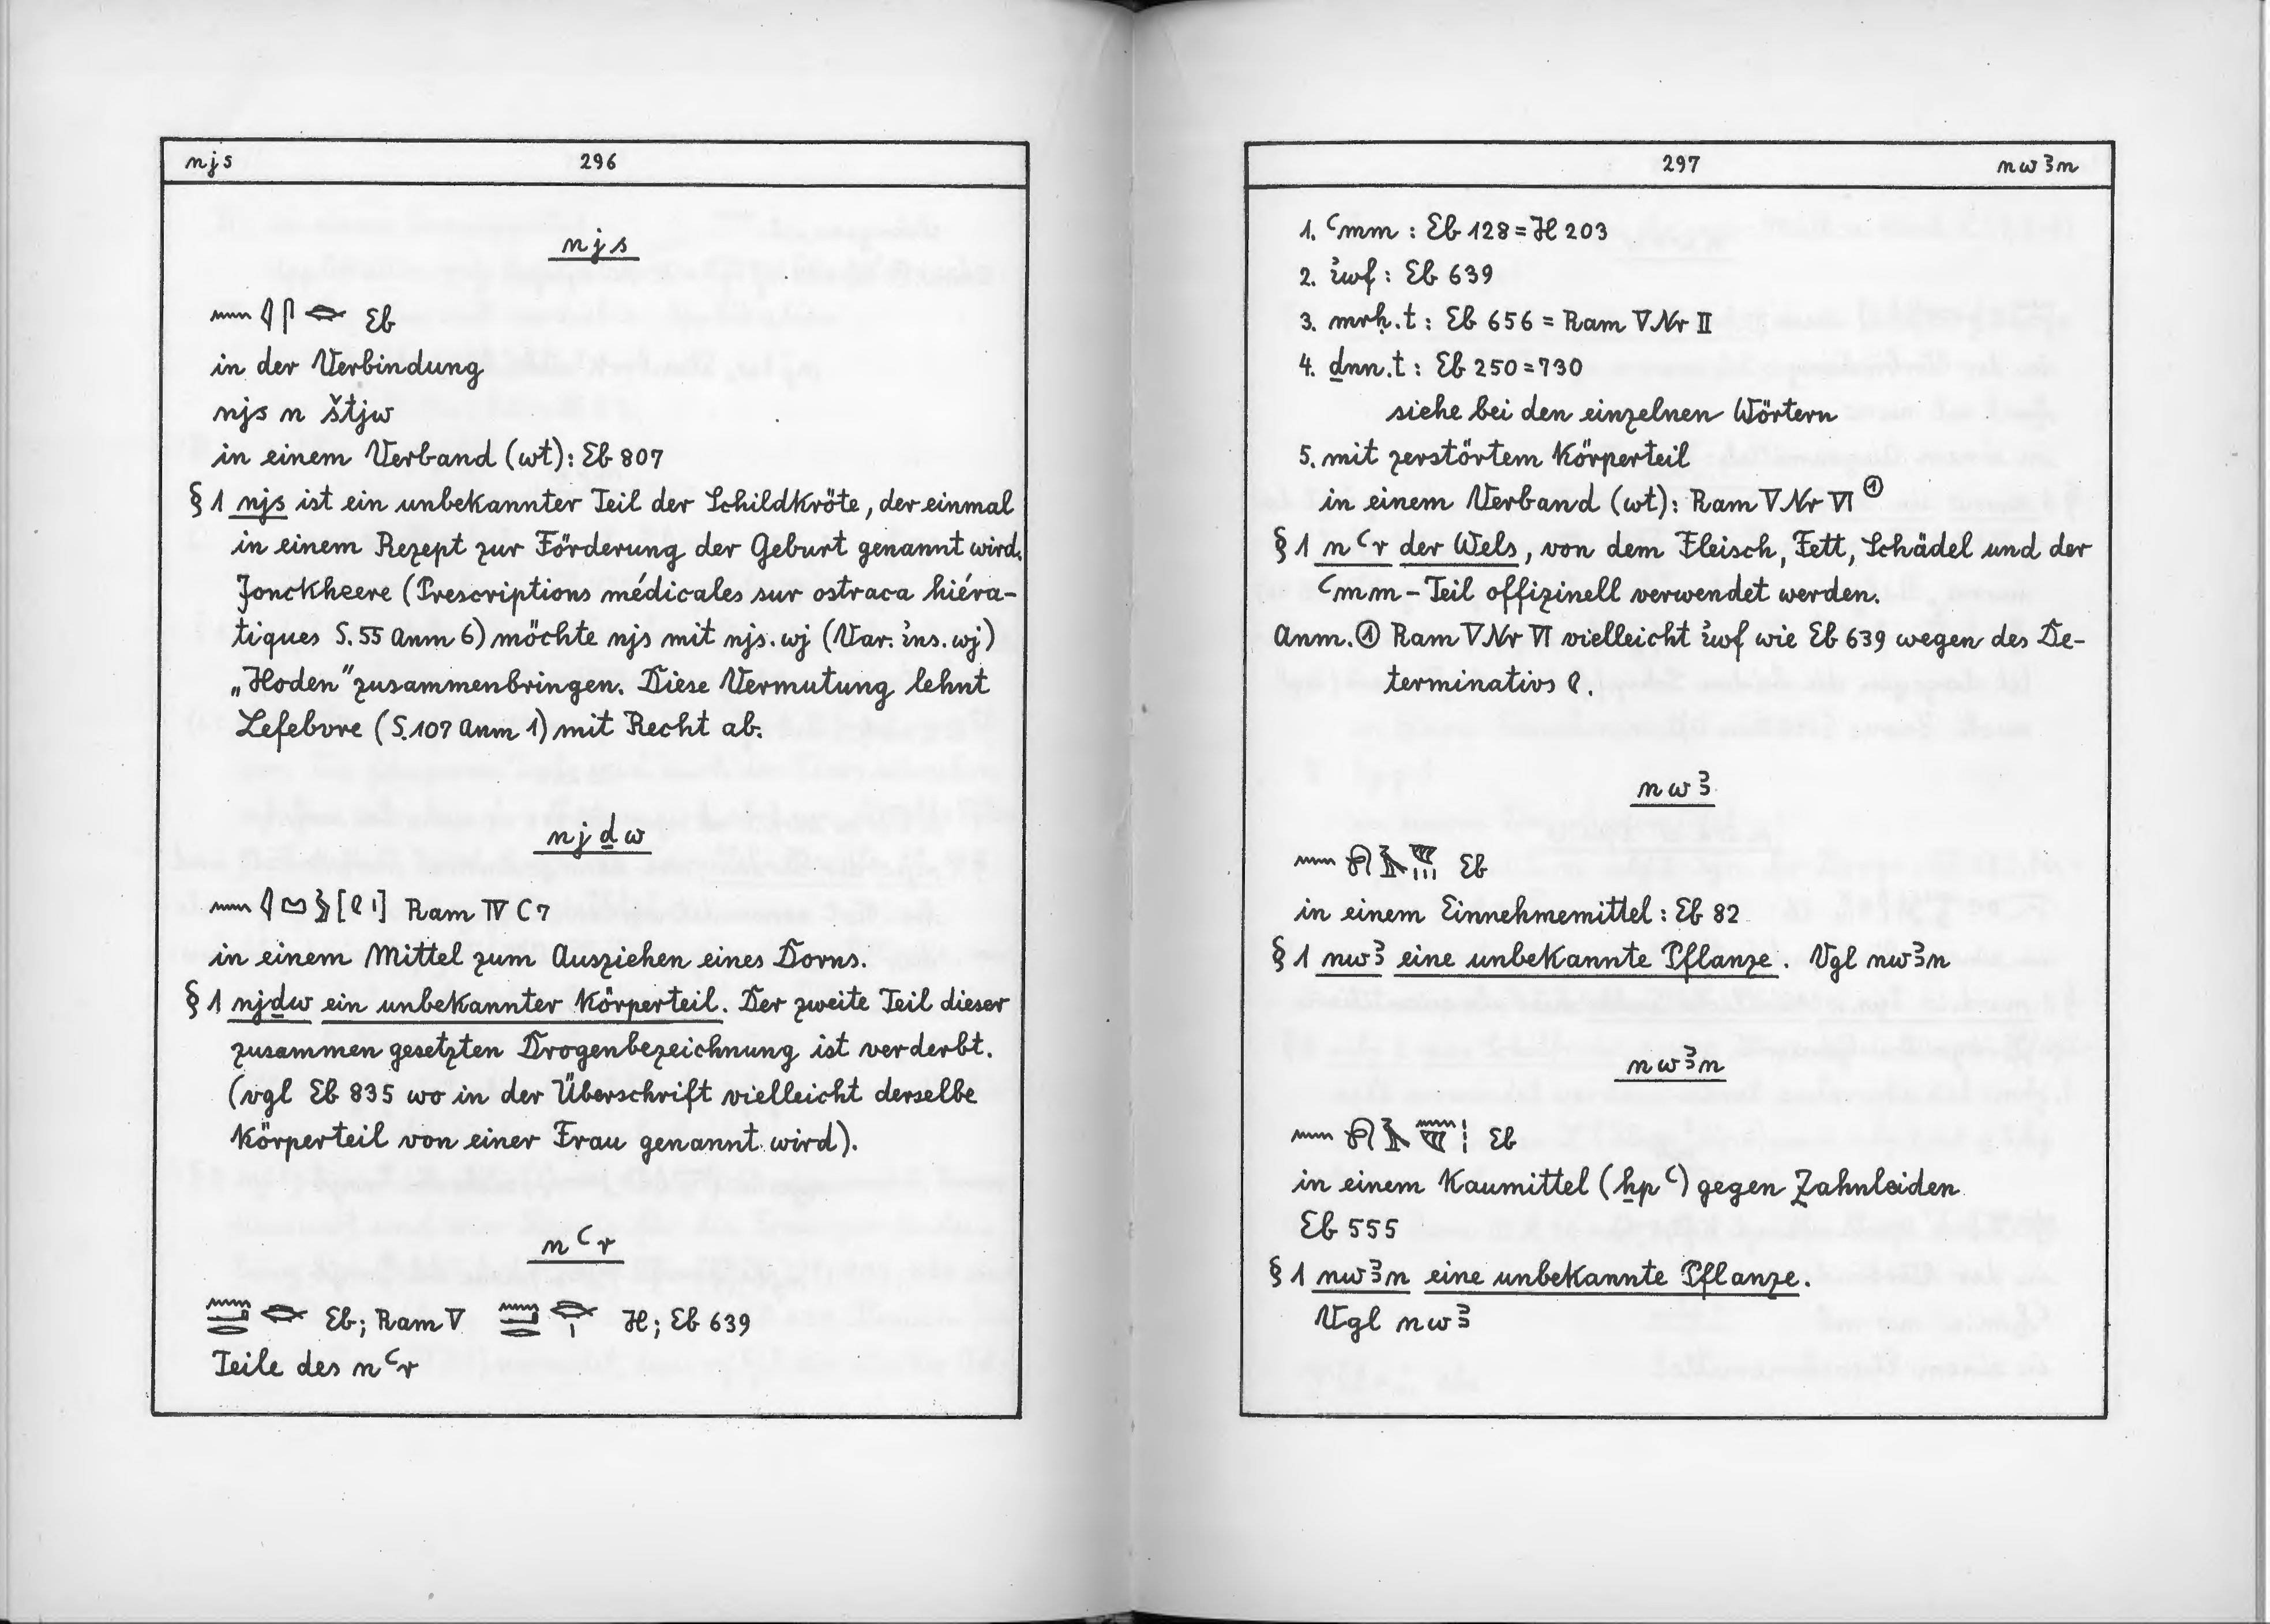 njs 296
njs
Eb
in der Verbindung
njs n štjw
in einem Verband (wt): Eb 807
§ 1 njs ist ein unbekannter Teil der Schildkröte, der einmal
in einem Rezept zur Förderung der Geburt genannt wird.
Jonckheere (Prescriptions médicales sur ostraca hiéra-
tiques S. 55 Anm 6) möchte njs mit njs.wj (Var. ı͗ns.wj)
„Hoden" zusammenbringen. Diese Vermutung lehnt
Lefebvre (S. 107 Anm 1) mit Recht ab.
njḏw
[ ] Ram IV C 7
in einem Mittel zum Ausziehen eines Dorns.
§ 1 njḏw ein unbekannter Körperteil. Der zweite Teil dieser
zusammen gesetzten Drogenbezeichnung ist verderbt.
(vgl Eb 835 wo in der Überschrift vielleicht derselbe
Körperteil von einer Frau genannt wird).
nꜥr
Eb; Ram V H; Eb 639
Teile des nꜥr
297 nwꜣn
1. ꜥmm : Eb 128 = H 203
2. ı͗wf : Eb 639
3. mrḥ.t : Eb 656 = Ram V Nr II
4. ḏnn.t : Eb 250 = 730
siehe bei den einzelnen Wörtern
5. mit zerstörtem Körperteil
in einem Verband (wt): Ram V Nr VI ①
§ 1 nꜥr der Wels, von dem Fleisch, Fett, Schädel und der
ꜥmm-Teil offizinell verwendet werden.
Anm. ① Ram V Nr VI vielleicht ı͗wf wie Eb 639 wegen des De-
terminativs 𓄹.
nwꜣ
Eb
in einem Einnehmemittel : Eb 82
§ 1 nwꜣ eine unbekannte Pflanze. Vgl nwꜣn
nwꜣn
Eb
in einem Kaumittel (ẖpꜥ) gegen Zahnleiden
Eb 555
§ 1 nwꜣn eine unbekannte Pflanze.
Vgl nwꜣ